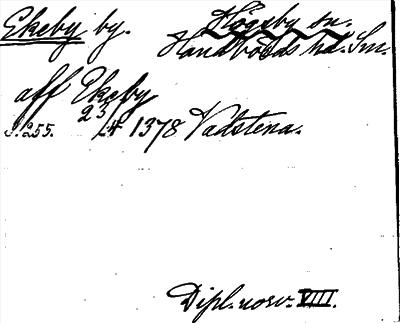 Ekeby by. Högsby sn.
Handbörds hd. Sm.
aff Ekeby
S. 255. 23/4 1378 Vadstena.
Dipl. norv. VIII.